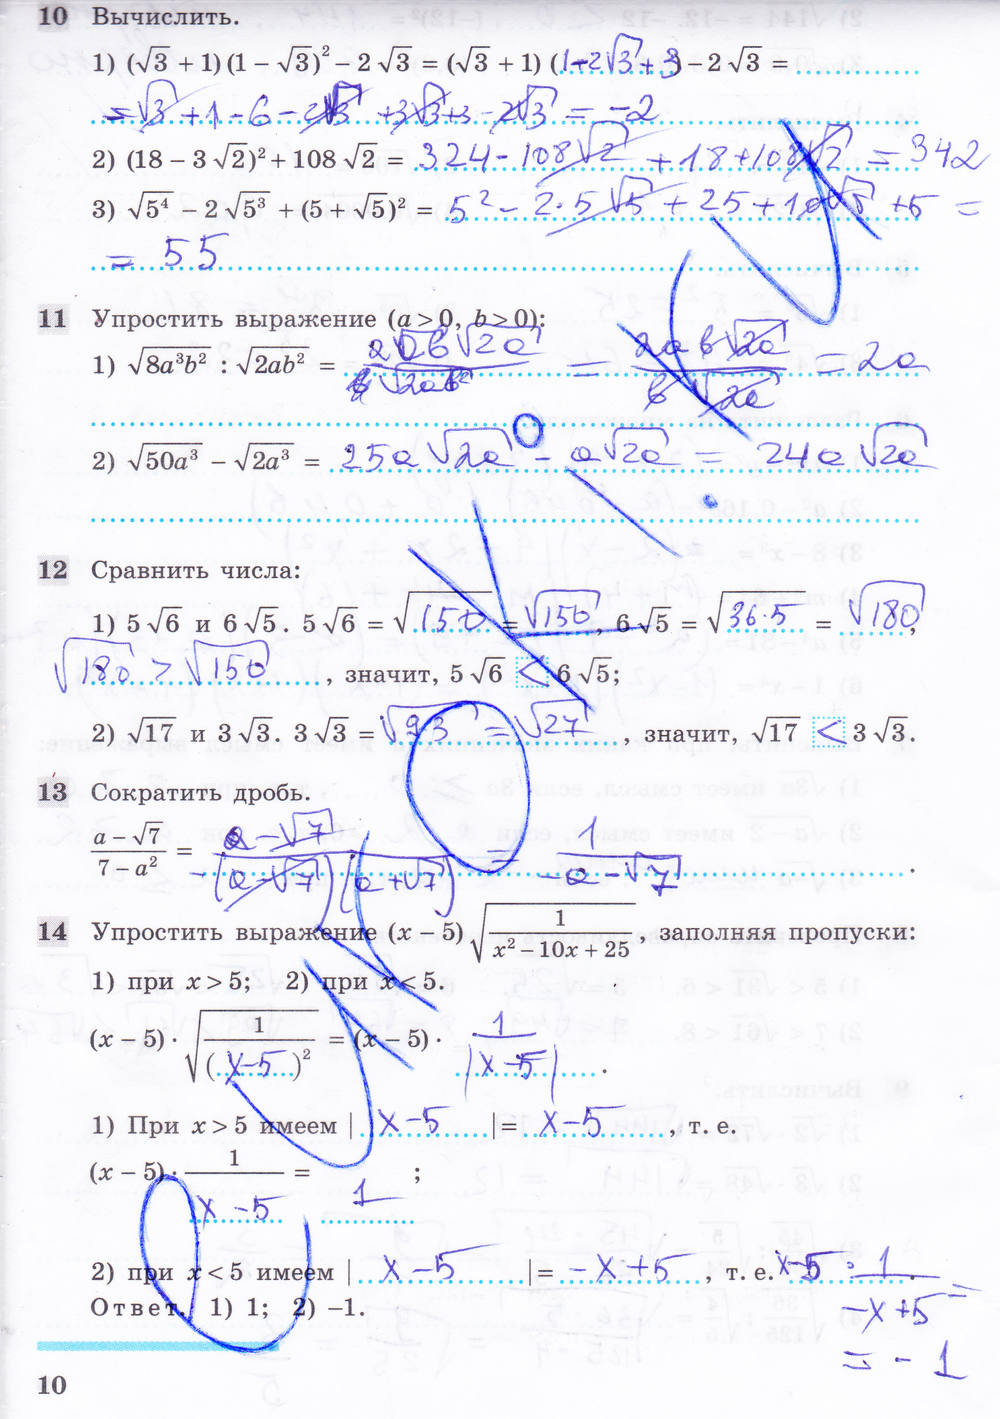 10 Вычислить.
1) (√3 + 1)(1 − √3)² − 2√3 = (√3 + 1)(1−2√3+3) − 2√3 =
= √3 + 1 − 6 − 2√3 + 3√3 + 3 − 2√3 = −2
2) (18 − 3√2)² + 108√2 = 324 − 108√2 + 18 + 108√2 = 342
3) √5⁴ − 2√5³ + (5 + √5)² = 5² − 2·5√5 + 25 + 10√5 + 5 =
= 55
11 Упростить выражение (a > 0, b > 0):
1) √8a³b² : √2ab² = 2ab√2a / √2ab² = 2ab√2a / b√2a = 2a
2) √50a³ − √2a³ = 25a√2a − a√2a = 24a√2a
12 Сравнить числа:
1) 5√6 и 6√5. 5√6 = √150 = √150, 6√5 = √36·5 = √180,
√180 > √150, значит, 5√6 < 6√5;
2) √17 и 3√3. 3√3 = √9·3 = √27, значит, √17 < 3√3.
13 Сократить дробь.
a − √7 / 7 − a² = a − √7 / −(a − √7)(a + √7) = 1 / −a − √7.
14 Упростить выражение (x − 5)√1 / x² − 10x + 25, заполняя пропуски:
1) при x > 5; 2) при x < 5.
(x − 5) · √1 / (x−5)² = (x − 5) · 1 / |x−5|.
1) При x > 5 имеем |x−5| = x−5, т. е.
(x − 5) · 1 / x−5 = 1;
2) при x < 5 имеем |x−5| = −x+5, т. е. x−5 · 1 / −x+5 =
= −1
Ответ. 1) 1; 2) −1.
10